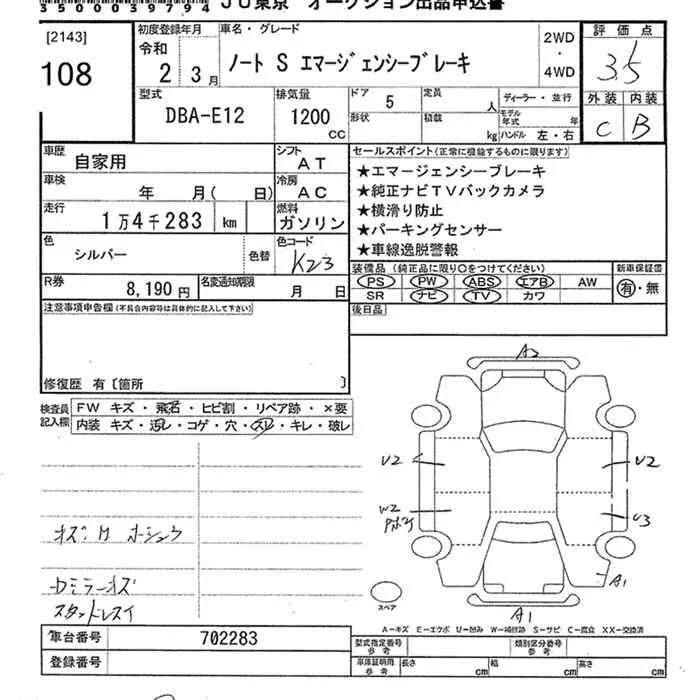 35000039794
JU東京 オークション出品申込書
[2143]
108
初度登録年月
令和
2 3月
車名・グレード
ノート S エマージェンシーブレーキ
2WD
・
4WD
評価点
3.5
外装 内装
C B
型式
DBA-E12
排気量
1200
CC
ドア 5
形状
定員 人
積載 kg
ディーラー・並行
モデル年式 年
ハンドル 左・右
車歴 自家用
シフト AT
車検 年 月( 日)
冷房 AC
走行 1万4千283 km
燃料 ガソリン
色 シルバー
色替
色コード K23
R券 8,190円
名変通知期限 月 日
セールスポイント(正常に機能するものに限ります)
★エマージェンシーブレーキ
★純正ナビTVバックカメラ
★横滑り防止
★パーキングセンサー
★車線逸脱警報
装備品(純正品に限り○をつけてください)
新車保証書
PS PW ABS エアB AW
SR ナビ TV カワ
有・無
後日品
注意事項申告欄(不具合内容等は具体的に記入して下さい)
修復歴 有〔箇所 〕
検査員記入欄
FW キズ・飛石・ヒビ割・リペア跡・×要
内装 キズ・汚レ・コゲ・穴・スレ・キレ・破レ
A2
U2
U2
W2
U3
A1
A1
スペア
A−キズ E−エクボ U−凹み W−補修跡 S−サビ C−腐食 XX−交換済
車台番号 702283
登録番号
型式指定番号 参考
類別区分番号 参考
車庫証明用 参考
長さ cm
幅 cm
高さ cm